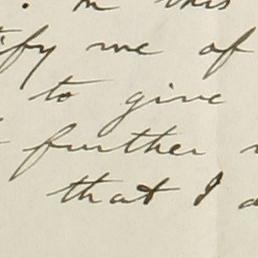 In this
ify me of
to give
further
that I